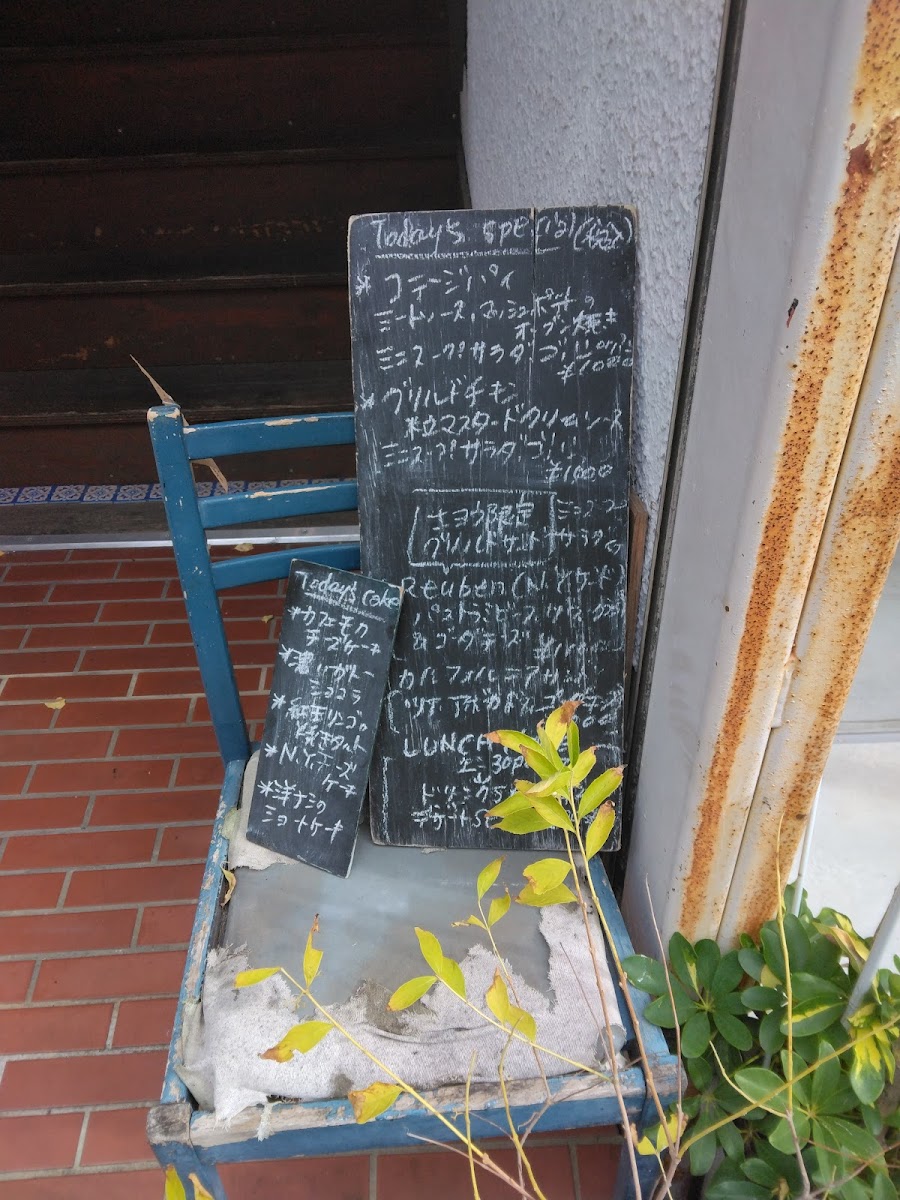 Today's special(税込)
* コテージパイ
ミートソース、マッシュポテトの
オーブン焼き
ミニスープ サラダ ゴハン or パン
¥1000
* グリルドチキン
粒マスタードクリームソース
ミニスープ サラダ ゴハン
¥1000
キョウ限定 ミニスープ
グリルドサンド サラダ
Reuben
パストラミビーフ
& ゴーダチーズ
カルフォルニア
アボカド
LUNCH
2:30PM
ドリンク
デザート
Today's Cake
* カフェモカ
チーズケーキ
* 濃いガトー
ショコラ
* 紅玉リンゴの
焼きタルト
* N.Y.チーズ
ケーキ
* 洋ナシの
ショートケーキ